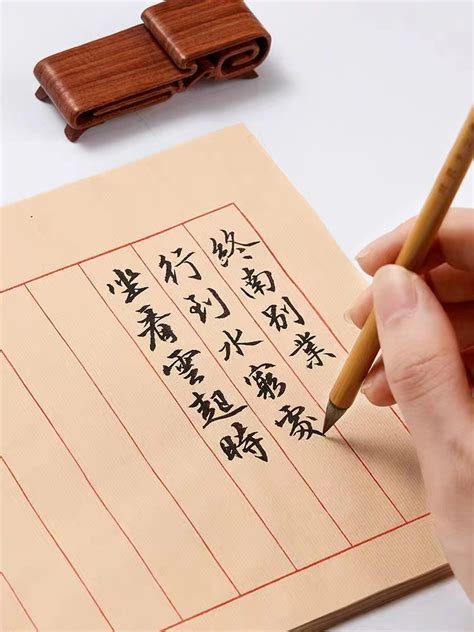 終南別業
行到水窮處
坐看雲起時